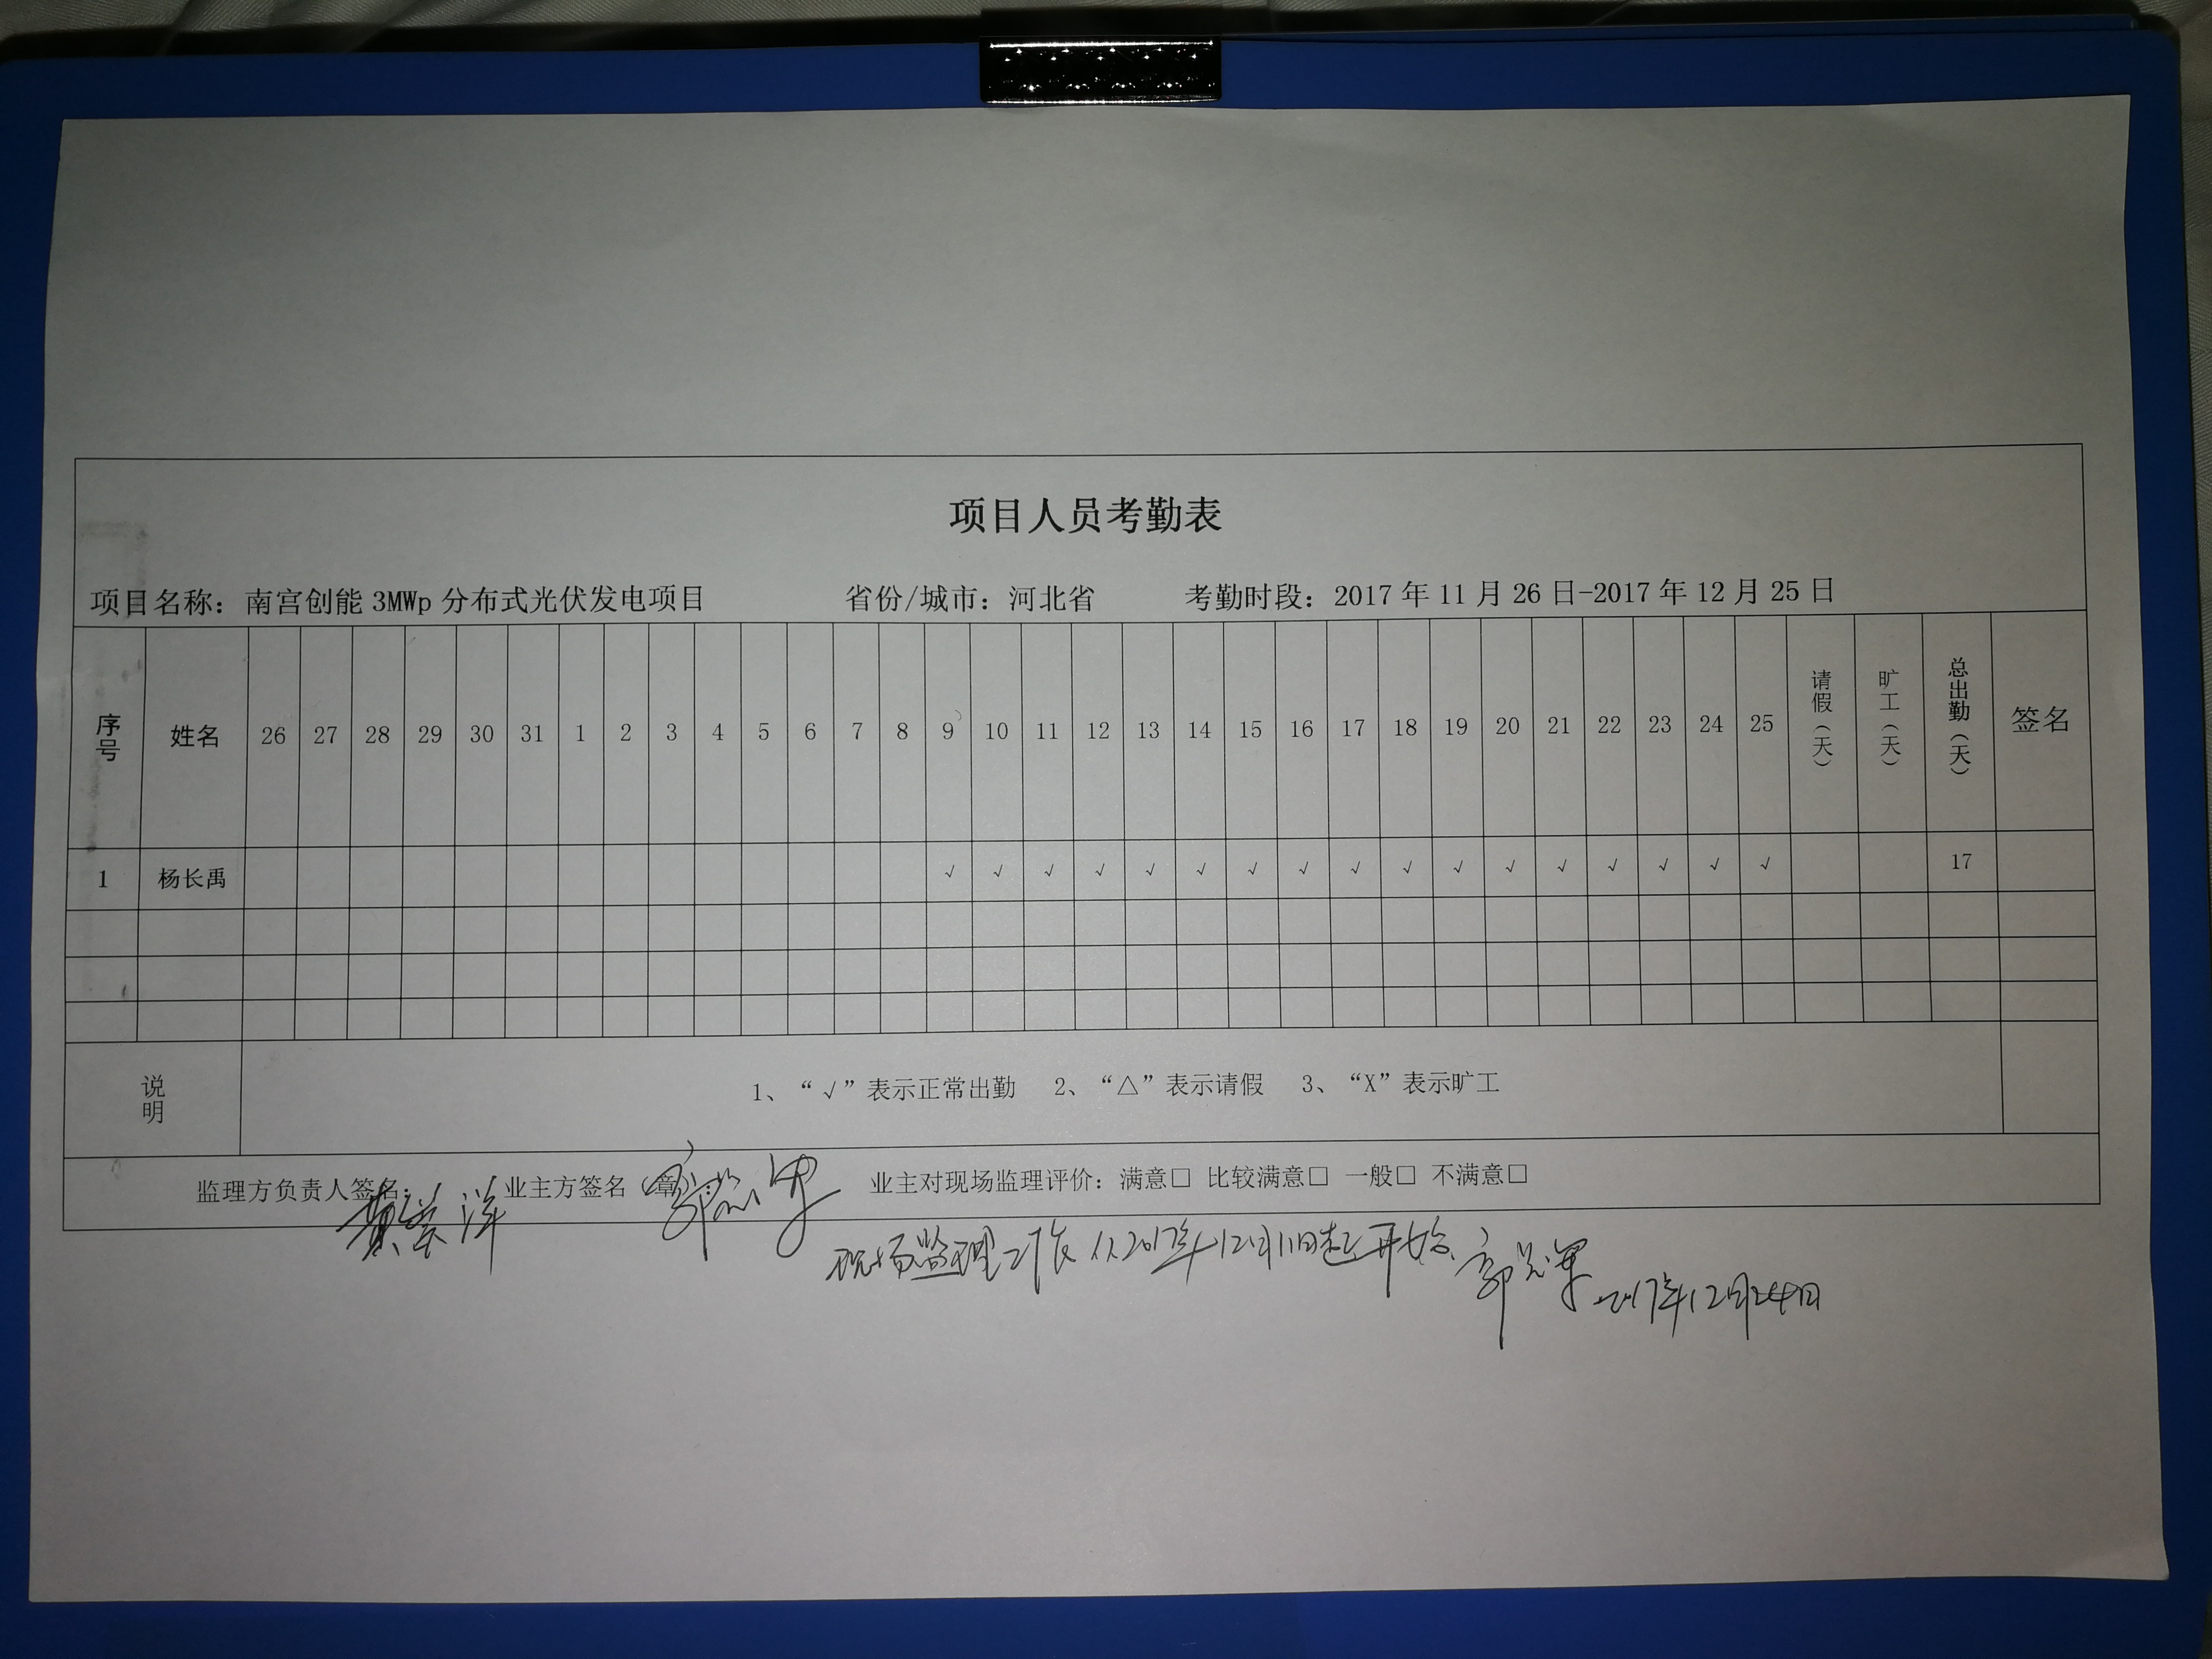 项目人员考勤表
项目名称：南宫创能 3MWp 分布式光伏发电项目 省份/城市：河北省 考勤时段：2017 年 11 月 26 日-2017 年 12 月 25 日
序号 姓名 26 27 28 29 30 31 1 2 3 4 5 6 7 8 9 10 11 12 13 14 15 16 17 18 19 20 21 22 23 24 25 请假（天） 旷工（天） 总出勤（天） 签名
1 杨长禹 √ √ √ √ √ √ √ √ √ √ √ √ √ √ √ √ √ 17
说明 1、“√”表示正常出勤 2、“△”表示请假 3、“X”表示旷工
监理方负责人签名： 业主方签名（章） 业主对现场监理评价：满意□ 比较满意□ 一般□ 不满意□
现场监理工作从2017年12月11日起开始.
2017年12月24日